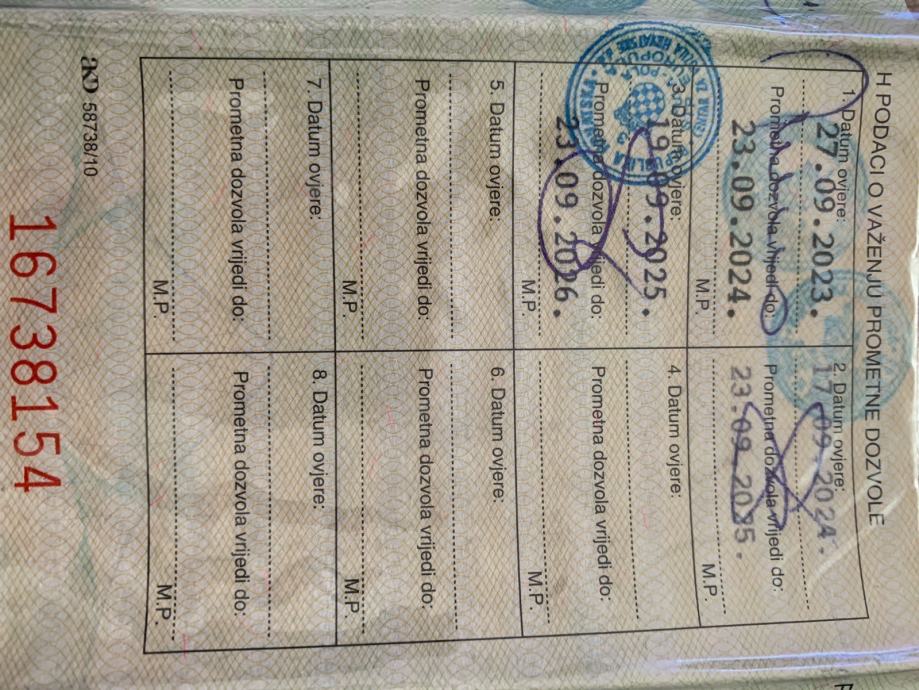 H PODACI O VAŽENJU PROMETNE DOZVOLE
1. Datum ovjere:
27.09.2023.
Prometna dozvola vrijedi do:
23.09.2024.
M.P.
2. Datum ovjere:
17.09.2024.
Prometna dozvola vrijedi do:
23.09.2025.
M.P.
3. Datum ovjere:
19.09.2025.
Prometna dozvola vrijedi do:
23.09.2026.
M.P.
4. Datum ovjere:
Prometna dozvola vrijedi do:
M.P.
5. Datum ovjere:
Prometna dozvola vrijedi do:
M.P.
6. Datum ovjere:
Prometna dozvola vrijedi do:
M.P.
7. Datum ovjere:
Prometna dozvola vrijedi do:
M.P.
8. Datum ovjere:
Prometna dozvola vrijedi do:
M.P.
58738/10
16738154